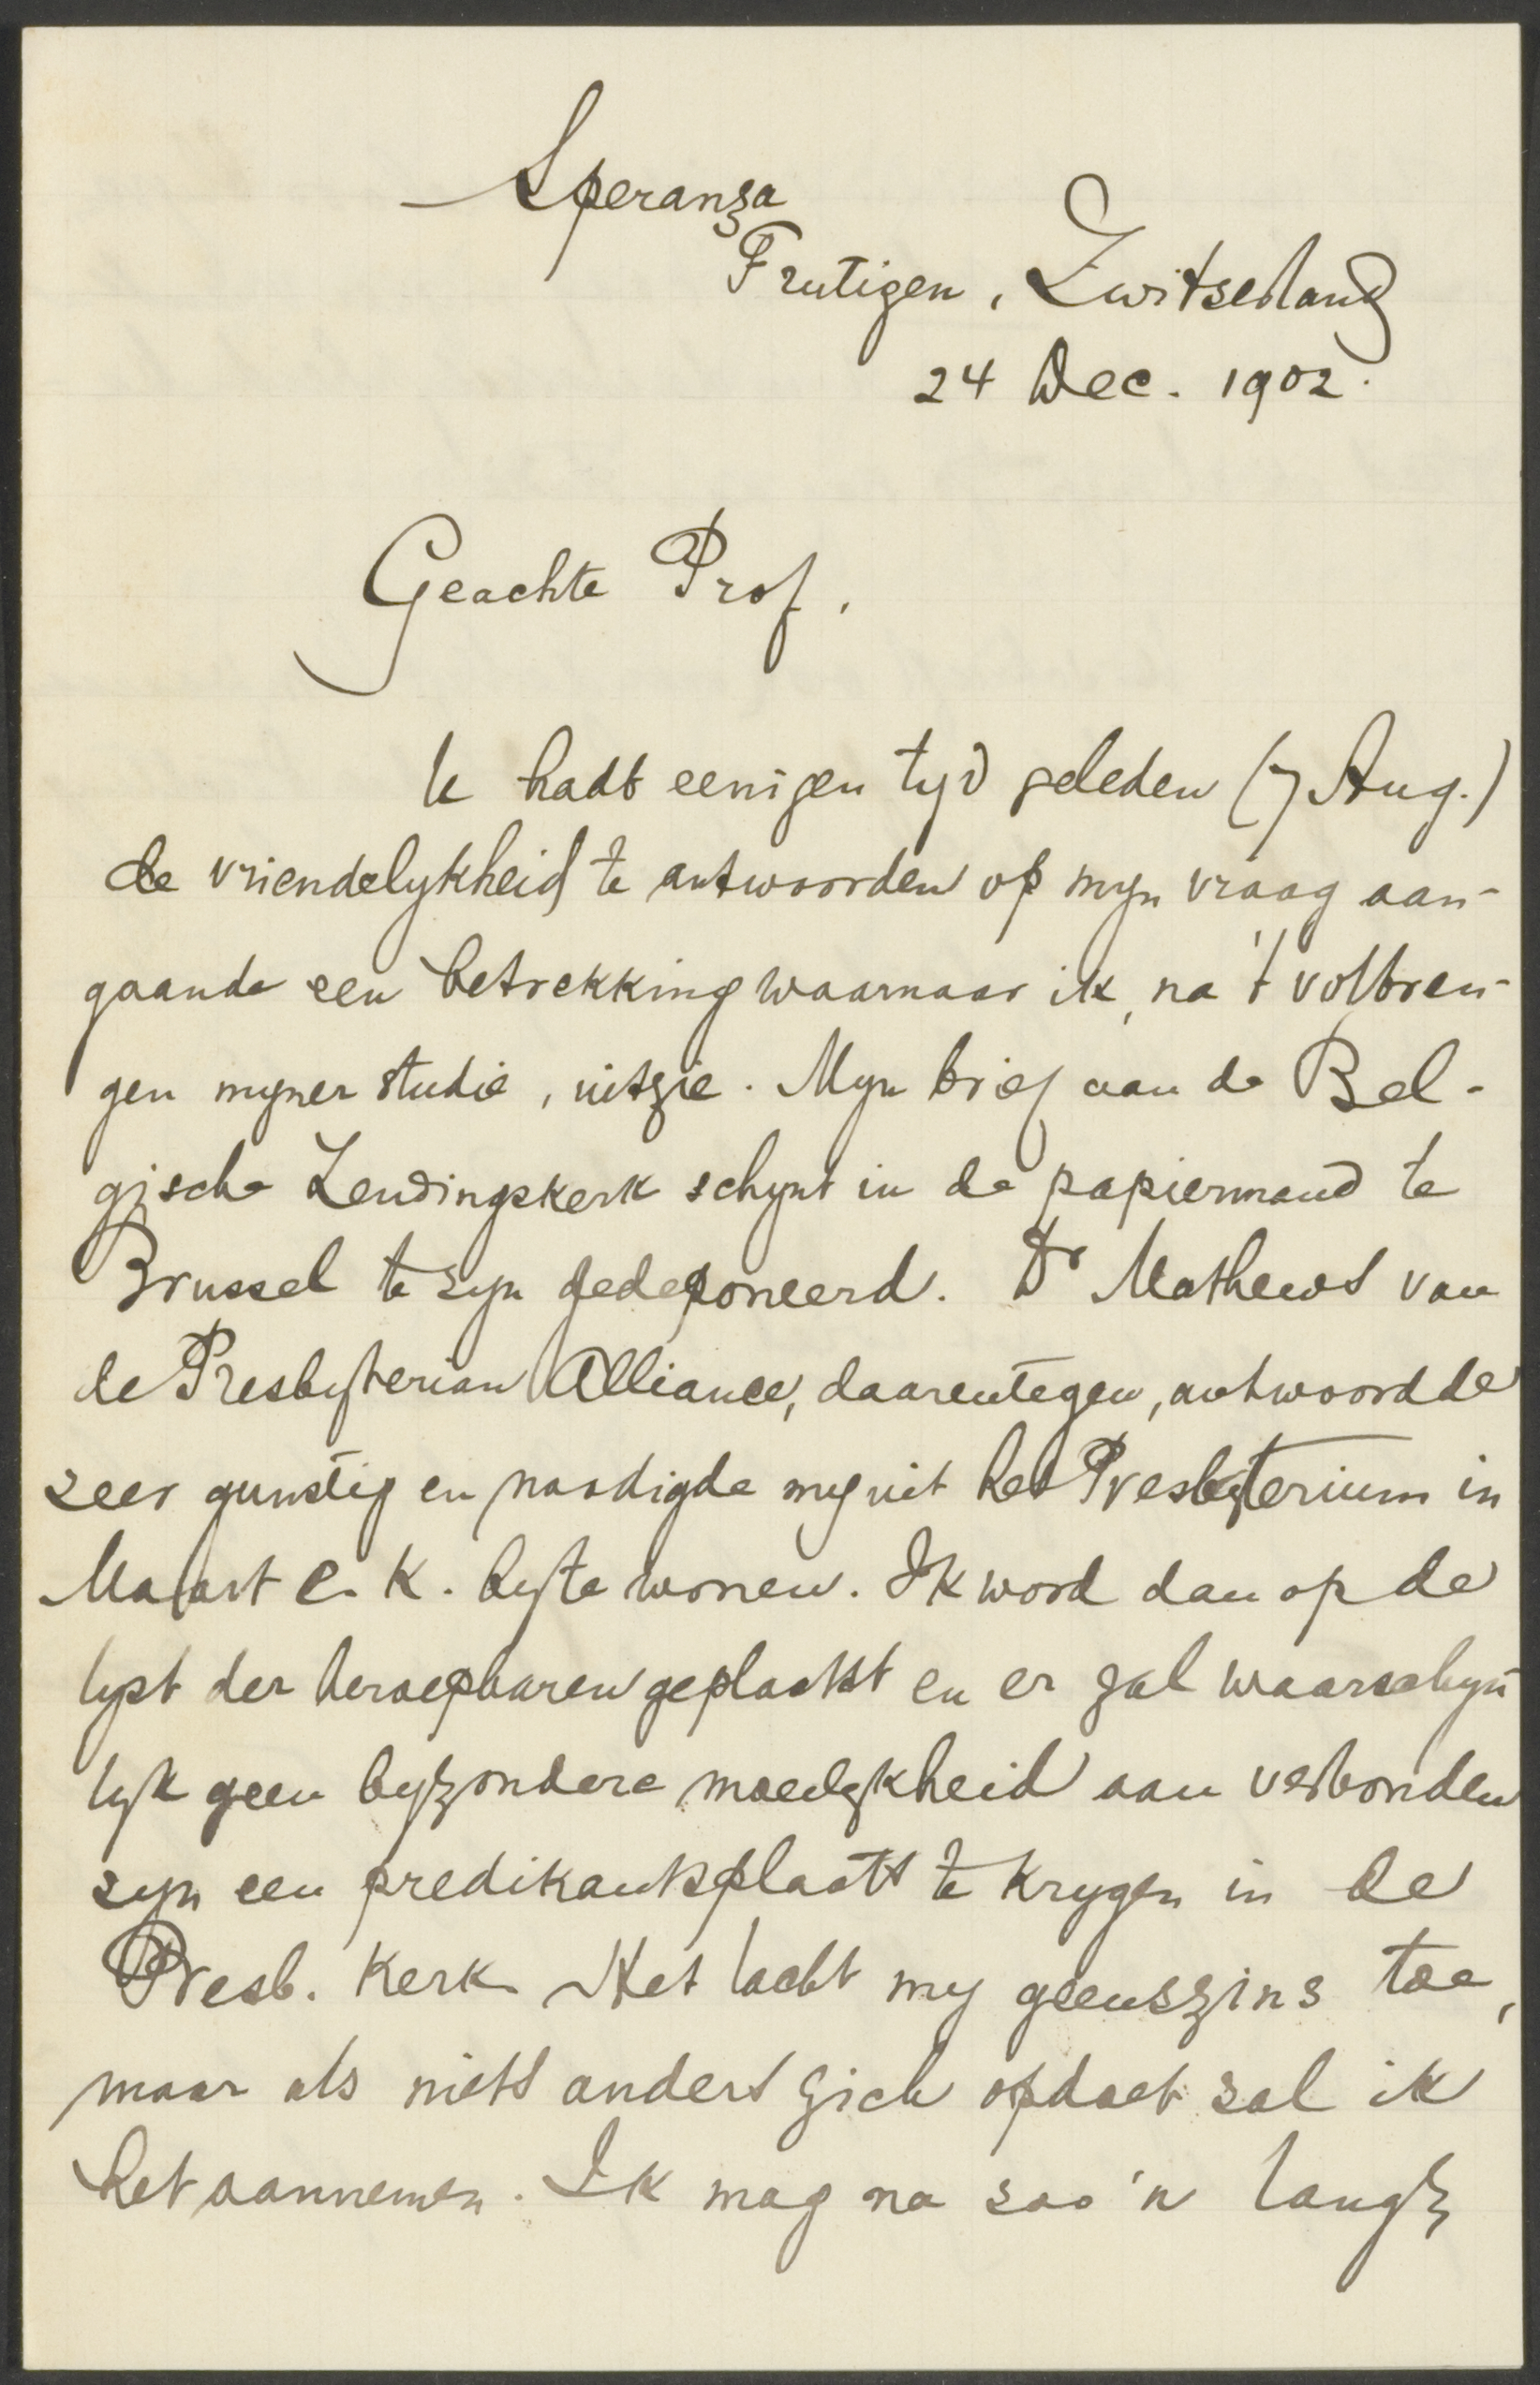 Speranza
Frutigen, Zwitserland
24 Dec. 1902.
Geachte Prof.,
U hadt eenigen tyd geleden (7 Aug.)
de vriendelykheid te antwoorden op myn vraag aan-
gaande een betrekking waarnaar ik, na 't volbren-
gen myner studie, uitzie. Myn brief aan de Bel-
gische Zendingskerk schynt in de papiermand te
Brussel te zyn gedeponeerd. Dr Mathews van
de Presbyterian Alliance, daarentegen, antwoordde
zeer gunstig en noodigde my uit het Presbyterium in
Maart e.k. by te wonen. Ik word dan op de
lyst der beroepbaren geplaatst en er zal waarschyn-
lyk geen byzondere moeilykheid aan verbonden
zyn een predikantsplaats te krygen in de
Presb. Kerk. Het lacht my geenszins toe,
maar als niets anders zich opdoet zal ik
het aannemen. Ik mag na zoo 'n lange